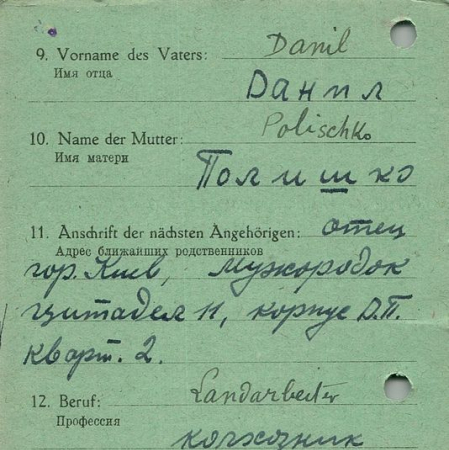 9. Vorname des Vaters: Danil
Имя отца
Данил
10. Name der Mutter: Polischko
Имя матери
Полишко
11. Anschrift der nächsten Angehörigen: отец
Адрес ближайших родственников
гор. Киев,
цитадел 11, корпус Д.П.
кварт. 2.
12. Beruf: Landarbeiter
Профессия
колхозник